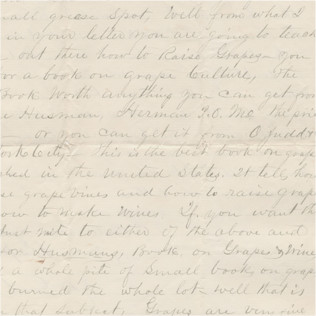 small grease spot, Well from what I
in your letter you are going to teach
out there how to Raise Grapes – you
for a book on grape Culture, The
Book worth anything you can get from
Husman, Herman P.O. Mo, the pri
– or you can get it from O. Judd &
York City – This is the best book on grape
shed in the United States. It tells how
se grape vines and how to raise grape
how to make Wines. If you want the
just write to either of the above and
for Husmans Book on Grapes & Wine
a whole pile of Small books on grape
burned the whole lot – Well that is
that Subject, Grapes are